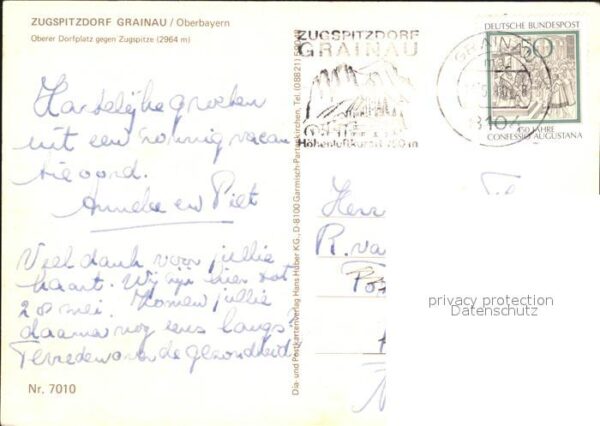 ZUGSPITZDORF GRAINAU / Oberbayern
Oberer Dorfplatz gegen Zugspitze (2964 m)
Hartelijke groeten
uit een zonnig vacan
tie oord.
Anneke en Piet
Veel dank voor jullie
kaart. Wij zijn hier tot
20 mei. Komen jullie
daarna nog eens langs?
Tevreden over de gezondheid
Nr. 7010
Dia- und Postkartenverlag Hans Huber KG., D-8100 Garmisch-Partenkirchen, Tel. (08821)
ZUGSPITZDORF
GRAINAU
Höhenluftkurort 750 m
GRAINAU
8104
DEUTSCHE BUNDESPOST
50
450 JAHRE
CONFESSIO AUGUSTANA
Herr
R. va
privacy protection
Datenschutz